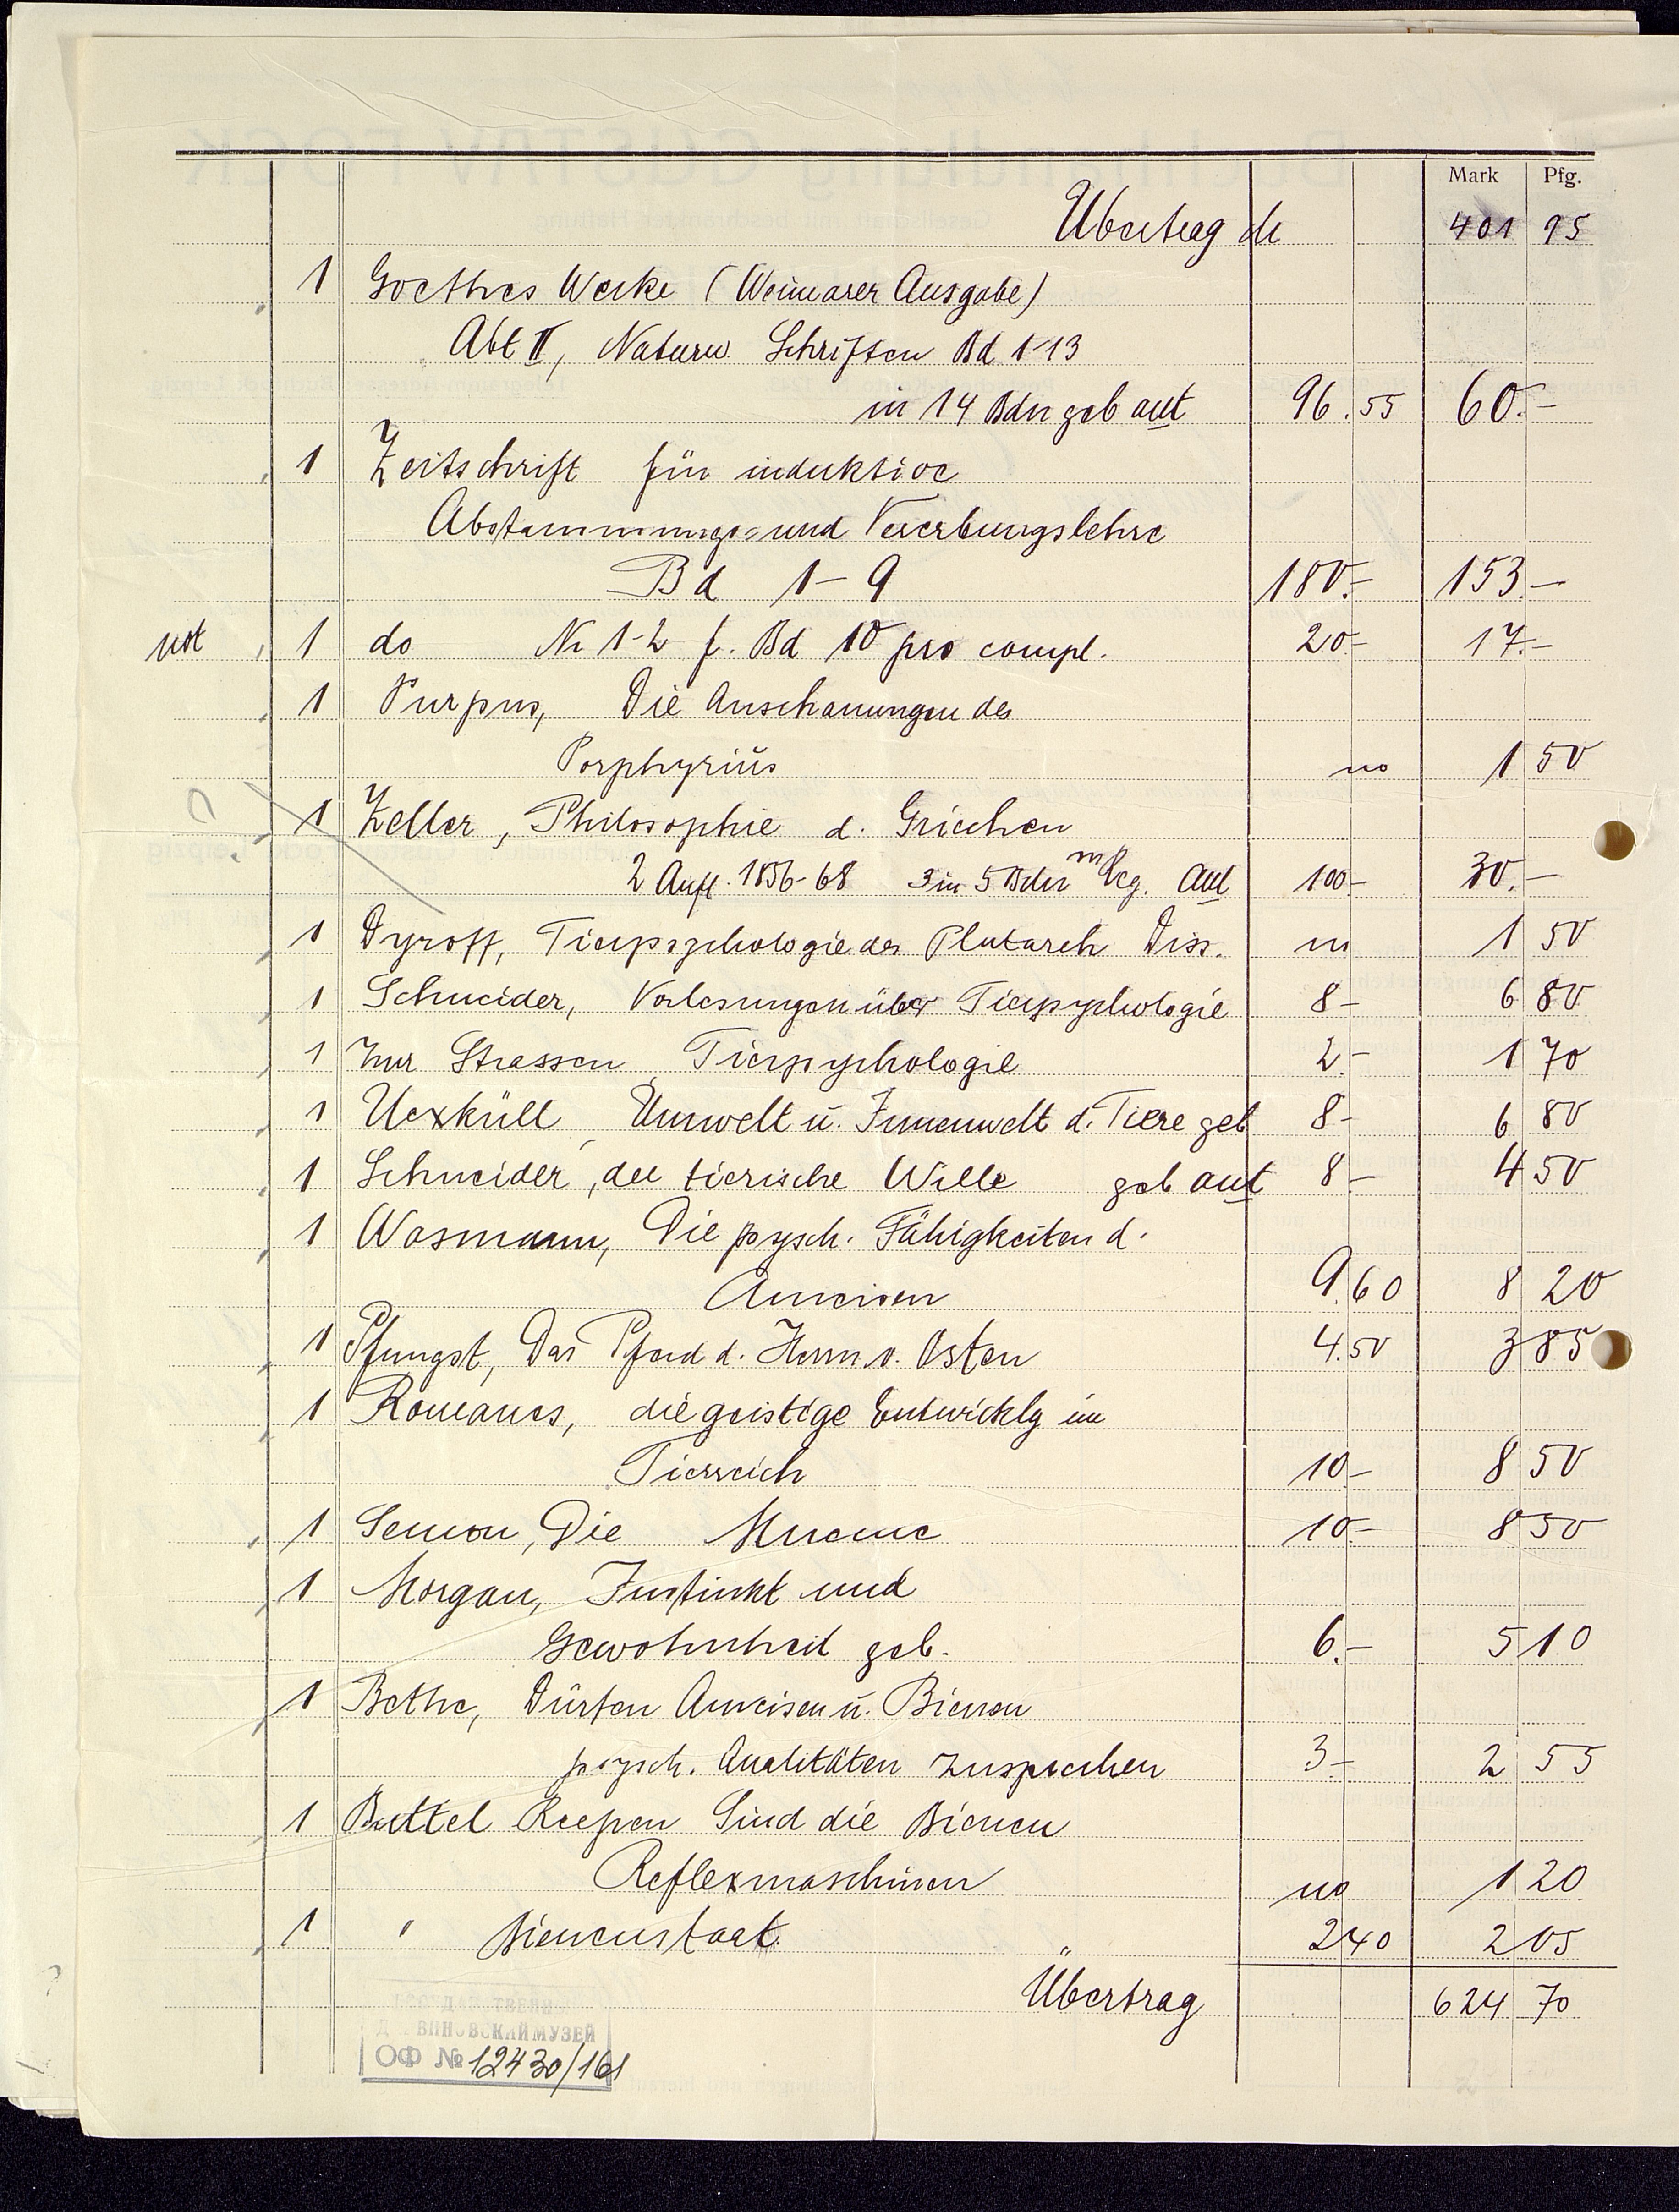 Mark Pfg.
Übertrag 401 95
1 Goethes Werke (Weimarer Ausgabe)
Abt II, Naturw. Schriften Bd 1-13
in 14 Bdn geb ant 96.55 60.-
1 Zeitschrift für induktive
Abstammungs- und Vererbungslehre
Bd 1-9 180.- 153.-
1 do Nr 1-2 f. Bd 10 pro compl. 20.- 17.-
1 Purpus, Die Anschauungen des
Porphyrius no 1 50
1 Zeller, Philosophie d. Griechen
2 Aufl. 1856-68 3 in 5 Bdn m Reg. Ant 100- 30.-
1 Dyroff, Tierpsychologie des Plutarch Diss. no 1 50
1 Schneider, Vorlesungen über Tierpsychologie 8- 6 80
1 Zur Strassen, Tierpsychologie 2.- 1 70
1 Uexküll, Umwelt u. Innenwelt d. Tiere geb 8- 6 80
1 Schneider, der tierische Wille geb ant 8- 4 50
1 Wasmann, Die psych. Fähigkeiten d.
Ameisen 9.60 8 20
1 Pfungst, Das Pferd d. Herrn v. Osten 4.50 3 85
1 Romanes, die geistige Entwicklg im
Tierreich 10- 8 50
1 Semon, Die Mneme 10.- 8 50
1 Morgan, Instinkt und
Gewohnheit geb. 6.- 5 10
1 Bethe, Dürfen Ameisen u. Bienen
psych. Qualitäten zusprechen 3- 2 55
1 Buttel Reepen Sind die Bienen
Reflexmaschinen no 1 20
1 " Bienenstaat " 2 40 2 05
Übertrag 624 70
ВИНОВСКИЙ МУЗЕЙ
ОФ № 12430/161